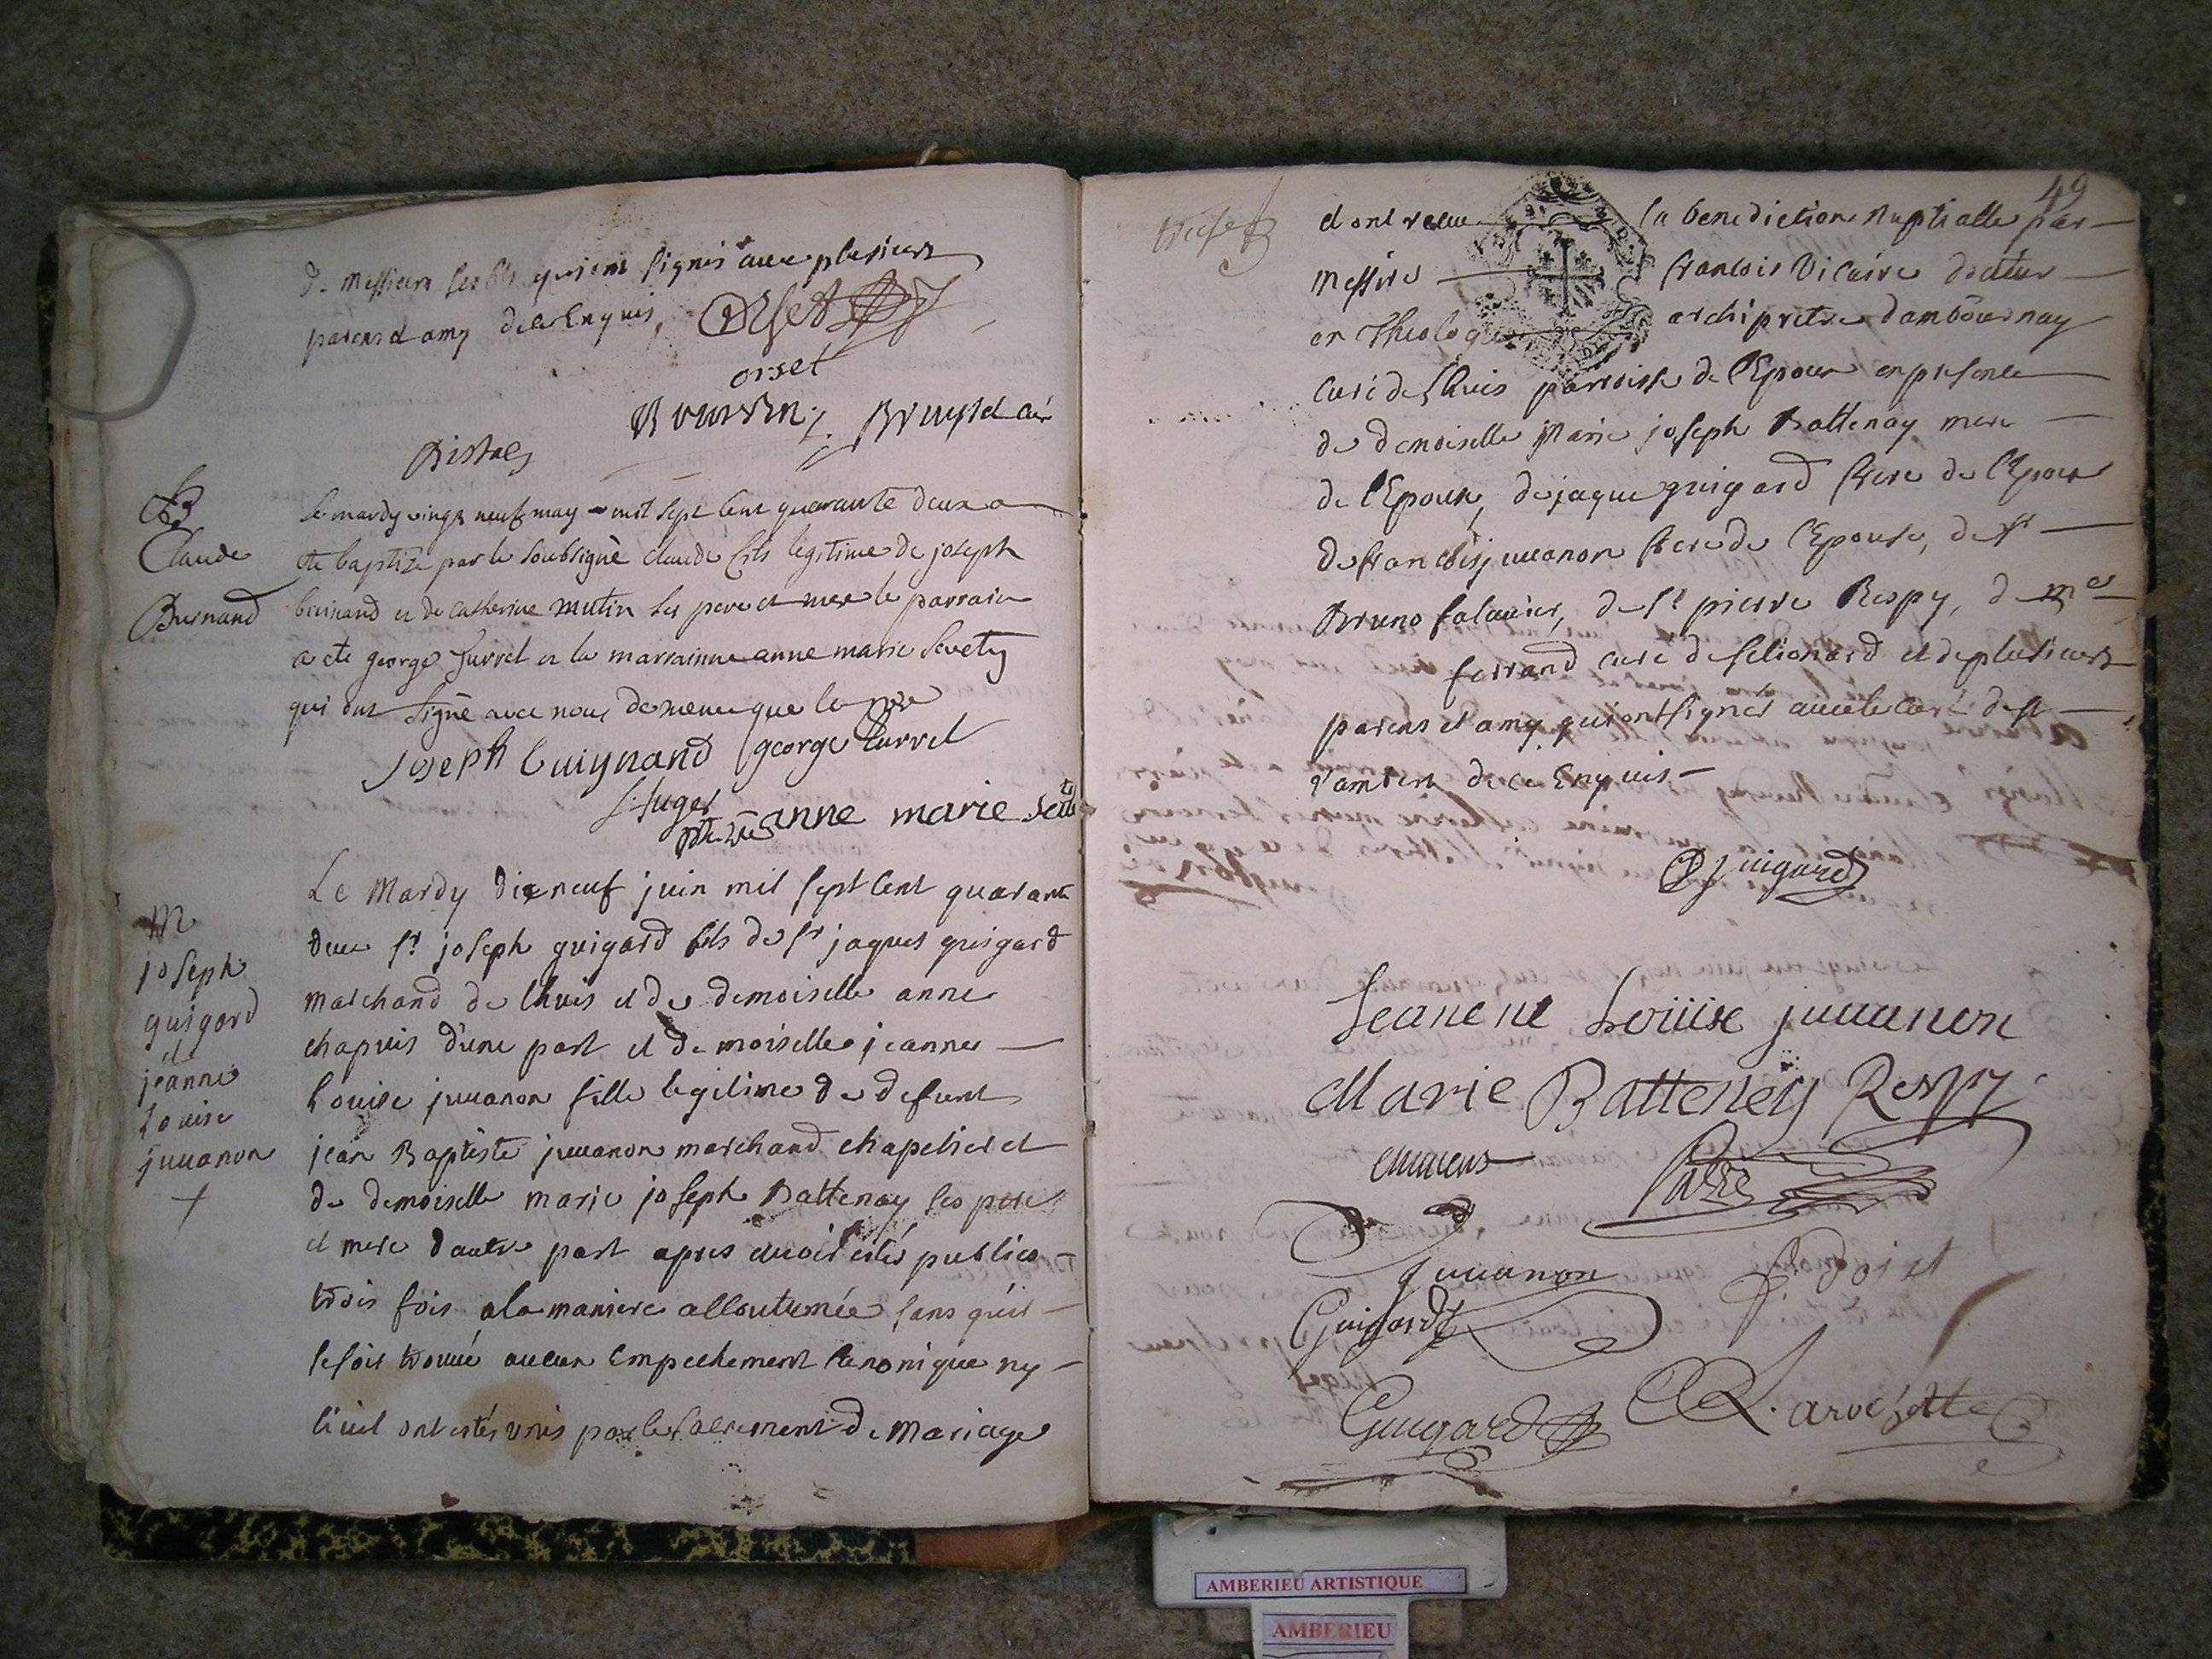 de messieurs ses fils qui ont signés avec plusieurs
parens et amy de ce enquis,
orset
B
Claude
Burnand
Le mardy vingt neuf may mil sept cent quarante deux a
ete baptize par le soubsigné claude fils legitime de joseph
burnand et de catherine mutin ses pere et mere le parrain
a ete george Curvel et la marrainne anne marie
qui ont signé avec nous de meme que le pere
Joseph buignand george Curvel
anne marie
M
joseph
guigard
et
jeanne
Louise
juuanon
Le Mardy dixneuf juin mil sept cent quarante
deux sr joseph guigard fils de sr jaques guigard
marchand de lhuis et de demoiselle anne
chapuis d'une part et demoiselle jeanne
Louise juuanon fille legitime de defunt
jean Baptiste juuanon marchand chapelier et
de demoiselle marie joseph Battenay ses pere
et mere dautre part apres auoir estés publiés
trois fois a la maniere accoutumée sans qu'il
se soit trouué aucun empechement canonique ny
ciuil ont estés unis par le sacrement de Mariage
49
et ont receu la benediction Nuptialle par
Messire francois Vicaire docteur
en Theologie archipretre dambournay
curé de lhuis parroisse de l'Epoux en presence
de demoiselle Marie joseph Battenay mere
de l'Epouse, de jaque guigard frere de l'Epoux
de francois juuanon frere de l'Epouse, de sr
Bruno salauier, de sr pierre Respy, de mre
ferrand curé de selionard et de plusieurs
parens et amy qui ont signés auec le curé de st
rambert de ce Enquis
Guigard
Jeanene Louise juuanon
Marie Batteney Respy
juuanon
Guigard
Guigard Larochette
AMBERIEU ARTISTIQUE
AMBERIEU